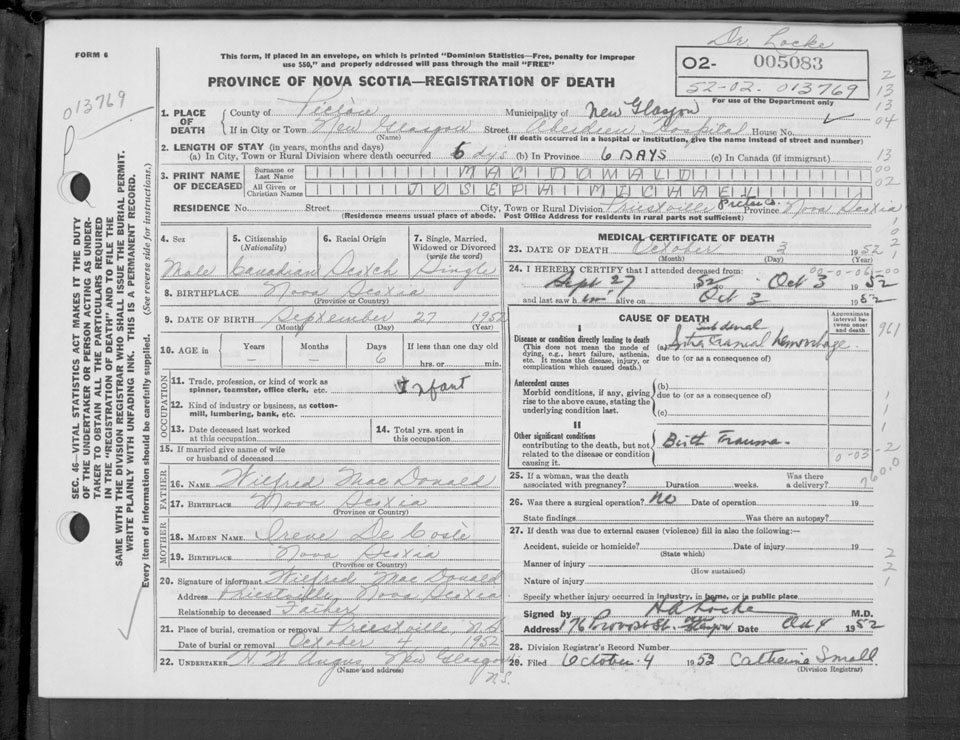 FORM 6
This form, if placed in an envelope, on which is printed "Dominion Statistics—Free, penalty for improper
use $50," and properly addressed will pass through the mail "FREE"
PROVINCE OF NOVA SCOTIA—REGISTRATION OF DEATH
Dr. Locke
02- 005083
52-02. 013769
For use of the Department only
013769
1. PLACE OF DEATH
County of Pictou Municipality of New Glasgow
If in City or Town New Glasgow Street Aberdeen Hospital House No.
(Name) (If death occurred in a hospital or institution, give the name instead of street and number)
2. LENGTH OF STAY (in years, months and days)
(a) In City, Town or Rural Division where death occurred 6 dys (b) In Province 6 DAYS (c) In Canada (if immigrant)
3. PRINT NAME OF DECEASED
Surname or Last Name MACDONALD
All Given or Christian Names JOSEPH MICHAEL
RESIDENCE No. Street City, Town or Rural Division Priestville Pictou Co. Province Nova Scotia
(Residence means usual place of abode. Post Office Address for residents in rural parts not sufficient)
4. Sex 5. Citizenship (Nationality) 6. Racial Origin 7. Single, Married, Widowed or Divorced (write the word)
Male Canadian Scotch Single
8. BIRTHPLACE Nova Scotia
(Province or Country)
9. DATE OF BIRTH September 27 1952
(Month) (Day) (Year)
10. AGE in Years Months Days If less than one day old
— — 6 hrs. or min.
OCCUPATION
11. Trade, profession, or kind of work as spinner, teamster, office clerk, etc. Infant
12. Kind of industry or business, as cotton-mill, lumbering, bank, etc.
13. Date deceased last worked at this occupation
14. Total yrs. spent in this occupation
15. If married give name of wife or husband of deceased
FATHER
16. NAME Wilfred MacDonald
17. BIRTHPLACE Nova Scotia
(Province or Country)
MOTHER
18. MAIDEN NAME Irene De Coste
19. BIRTHPLACE Nova Scotia
(Province or Country)
20. Signature of informant Wilfred MacDonald
Address Priestville Nova Scotia
Relationship to deceased Father
21. Place of burial, cremation or removal Priestville, N.S.
Date of burial or removal October 4 1952
22. UNDERTAKER H W Angus, New Glasgow
N.S.
(Name and address)
MEDICAL CERTIFICATE OF DEATH
23. DATE OF DEATH October 3 1952
(Month) (Day) (Year)
24. I HEREBY CERTIFY that I attended deceased from:
Sept 27 1952 Oct 3 1952
and last saw him alive on Oct 3 1952
CAUSE OF DEATH
Approximate interval between onset and death
I
Disease or condition directly leading to death
(This does not mean the mode of dying, e.g., heart failure, asthenia, etc. It means the disease, injury, or complication which caused death.)
Subdural
(a) Intra Cranial Hemorrhage.
due to (or as a consequence of)
Antecedent causes
Morbid conditions, if any, giving rise to the above cause, stating the underlying condition last.
(b)
due to (or as a consequence of)
(c)
II
Other significant conditions
contributing to the death, but not related to the disease or condition causing it.
Birth Trauma.
25. If a woman, was the death associated with pregnancy? Duration weeks. Was there a delivery?
26. Was there a surgical operation? no Date of operation 19
State findings Was there an autopsy?
27. If death was due to external causes (violence) fill in also the following:—
Accident, suicide or homicide? Date of injury 19
(State which)
Manner of injury
(How sustained)
Nature of injury
Specify whether injury occurred in industry, in home, or in public place
Signed by H A Locke M.D.
Address 176 Provost St. New Glasgow Date Oct 4 1952
28. Division Registrar's Record Number
29. Filed October 4 1952 Catherine Small
(Division Registrar)
SEC. 46—VITAL STATISTICS ACT MAKES IT THE DUTY
OF THE UNDERTAKER OR PERSON ACTING AS UNDER-
TAKER TO OBTAIN ALL THE PARTICULARS REQUIRED
IN THE "REGISTRATION OF DEATH" AND TO FILE THE
SAME WITH THE DIVISION REGISTRAR WHO SHALL ISSUE THE BURIAL PERMIT.
WRITE PLAINLY WITH UNFADING INK. THIS IS A PERMANENT RECORD.
Every item of information should be carefully supplied. (See reverse side for instructions.)